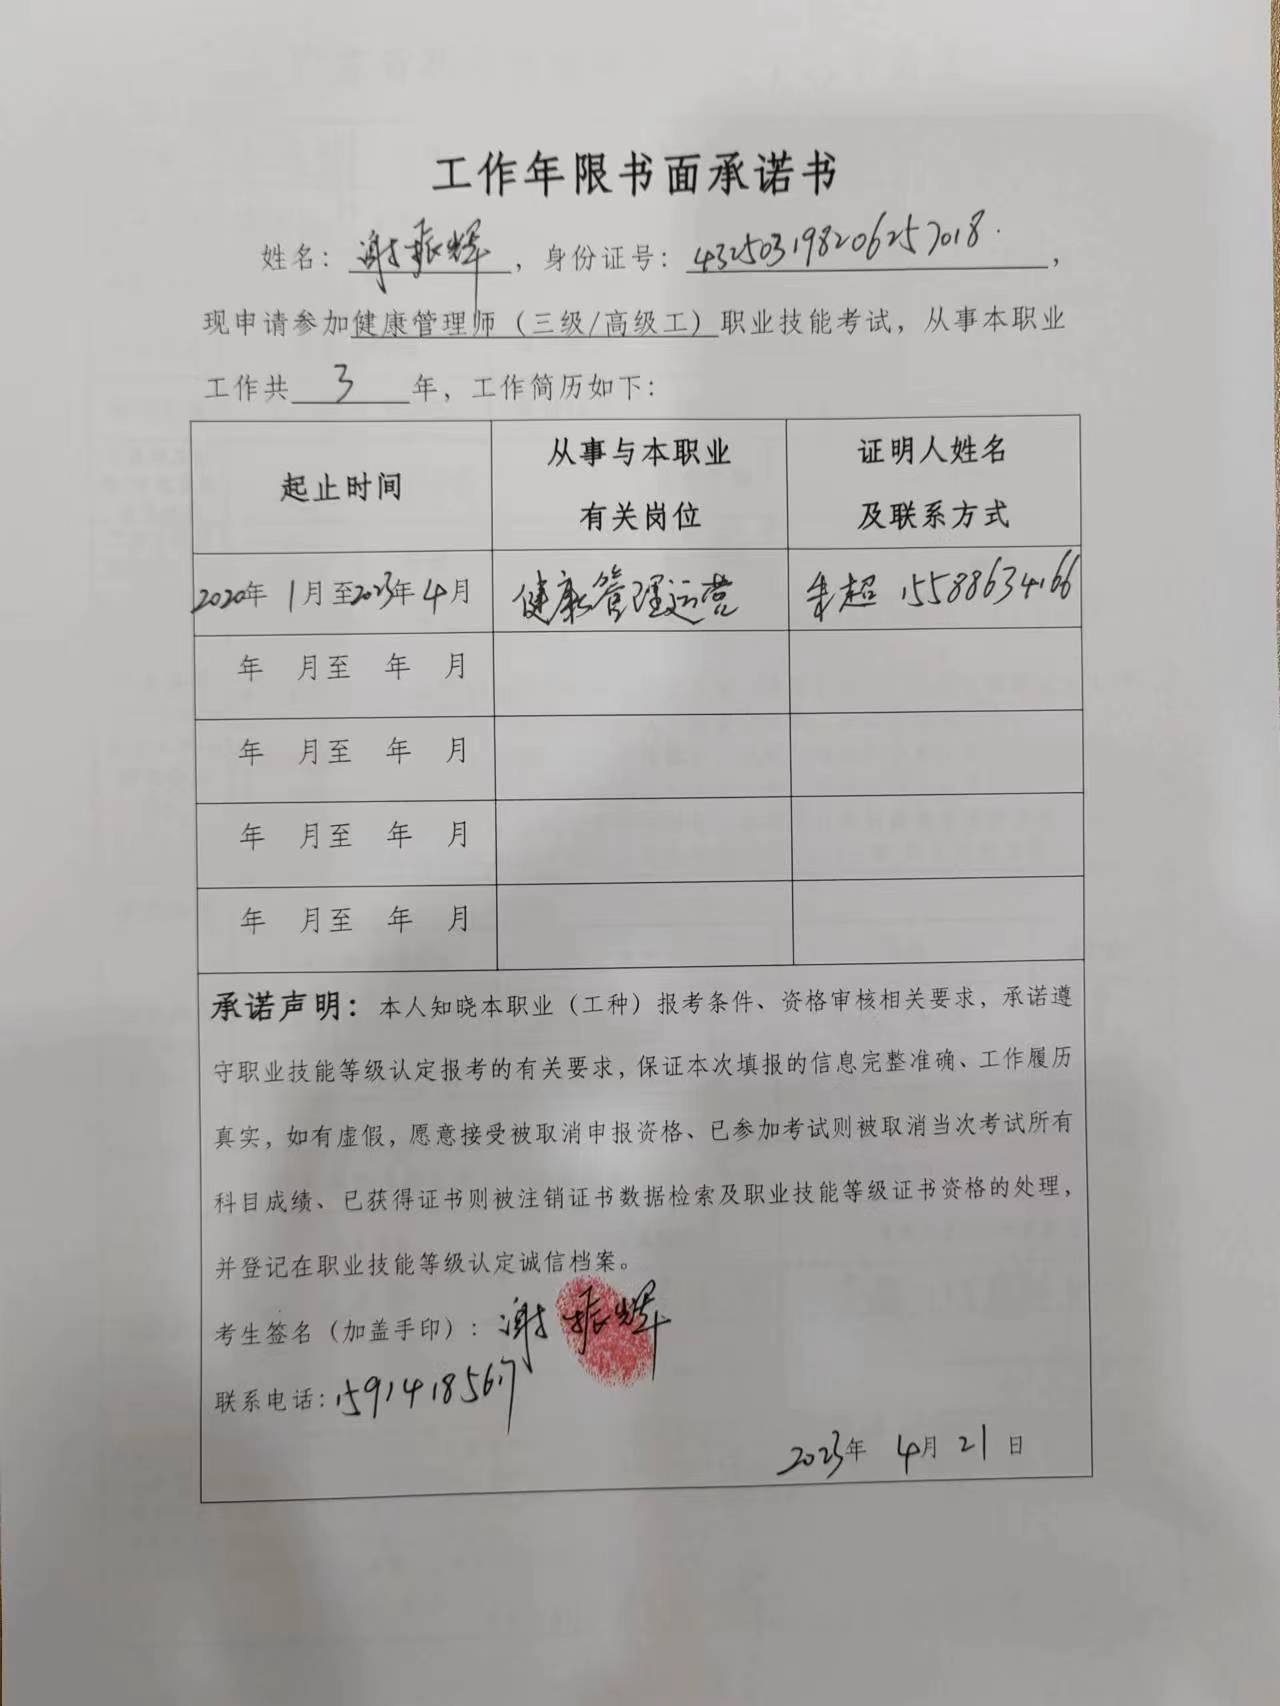 工作年限书面承诺书
姓名：谢振辉，身份证号：432503198206257018.，
现申请参加健康管理师（三级/高级工）职业技能考试，从事本职业
工作共3年，工作简历如下：
起止时间 从事与本职业有关岗位 证明人姓名及联系方式
2020年 1月至2023年4月 健康管理运营 朱超 15588634166
年 月至 年 月
年 月至 年 月
年 月至 年 月
年 月至 年 月
承诺声明：本人知晓本职业（工种）报考条件、资格审核相关要求，承诺遵
守职业技能等级认定报考的有关要求，保证本次填报的信息完整准确、工作履历
真实，如有虚假，愿意接受被取消申报资格、已参加考试则被取消当次考试所有
科目成绩、已获得证书则被注销证书数据检索及职业技能等级证书资格的处理，
并登记在职业技能等级认定诚信档案。
考生签名（加盖手印）：谢振辉
联系电话：15914185617
2023年 4月 21 日